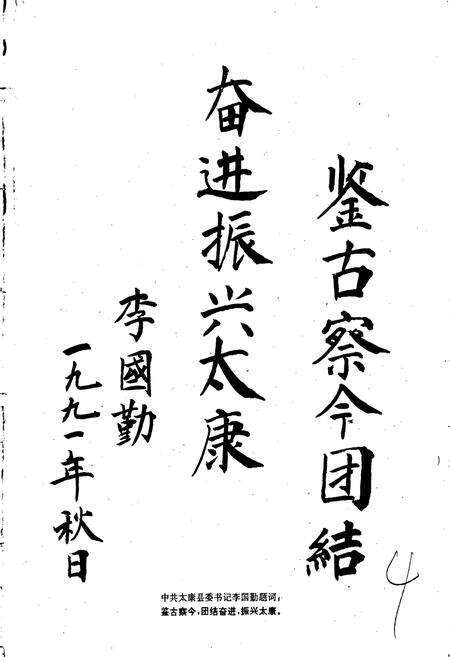 鉴古察今团結
奋进振兴太康
李國勤
一九九一年秋日
中共太康县委书记李国勤题词：
鉴古察今，团结奋进，振兴太康。
4